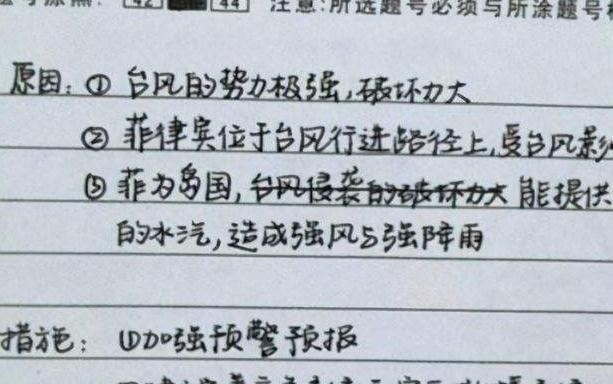 42 44 注意:所选题号必须与所涂题号
原因:① 台风的势力极强,破坏力大
② 菲律宾位于台风行进路径上,受台风影
③ 菲为岛国,台风侵袭的破坏力大 能提供
的水汽,造成强风与强降雨
措施: ①加强预警预报